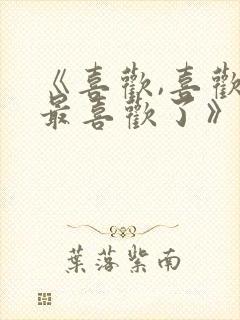 《喜歡,喜歡
最喜歡了》
葉落紫南